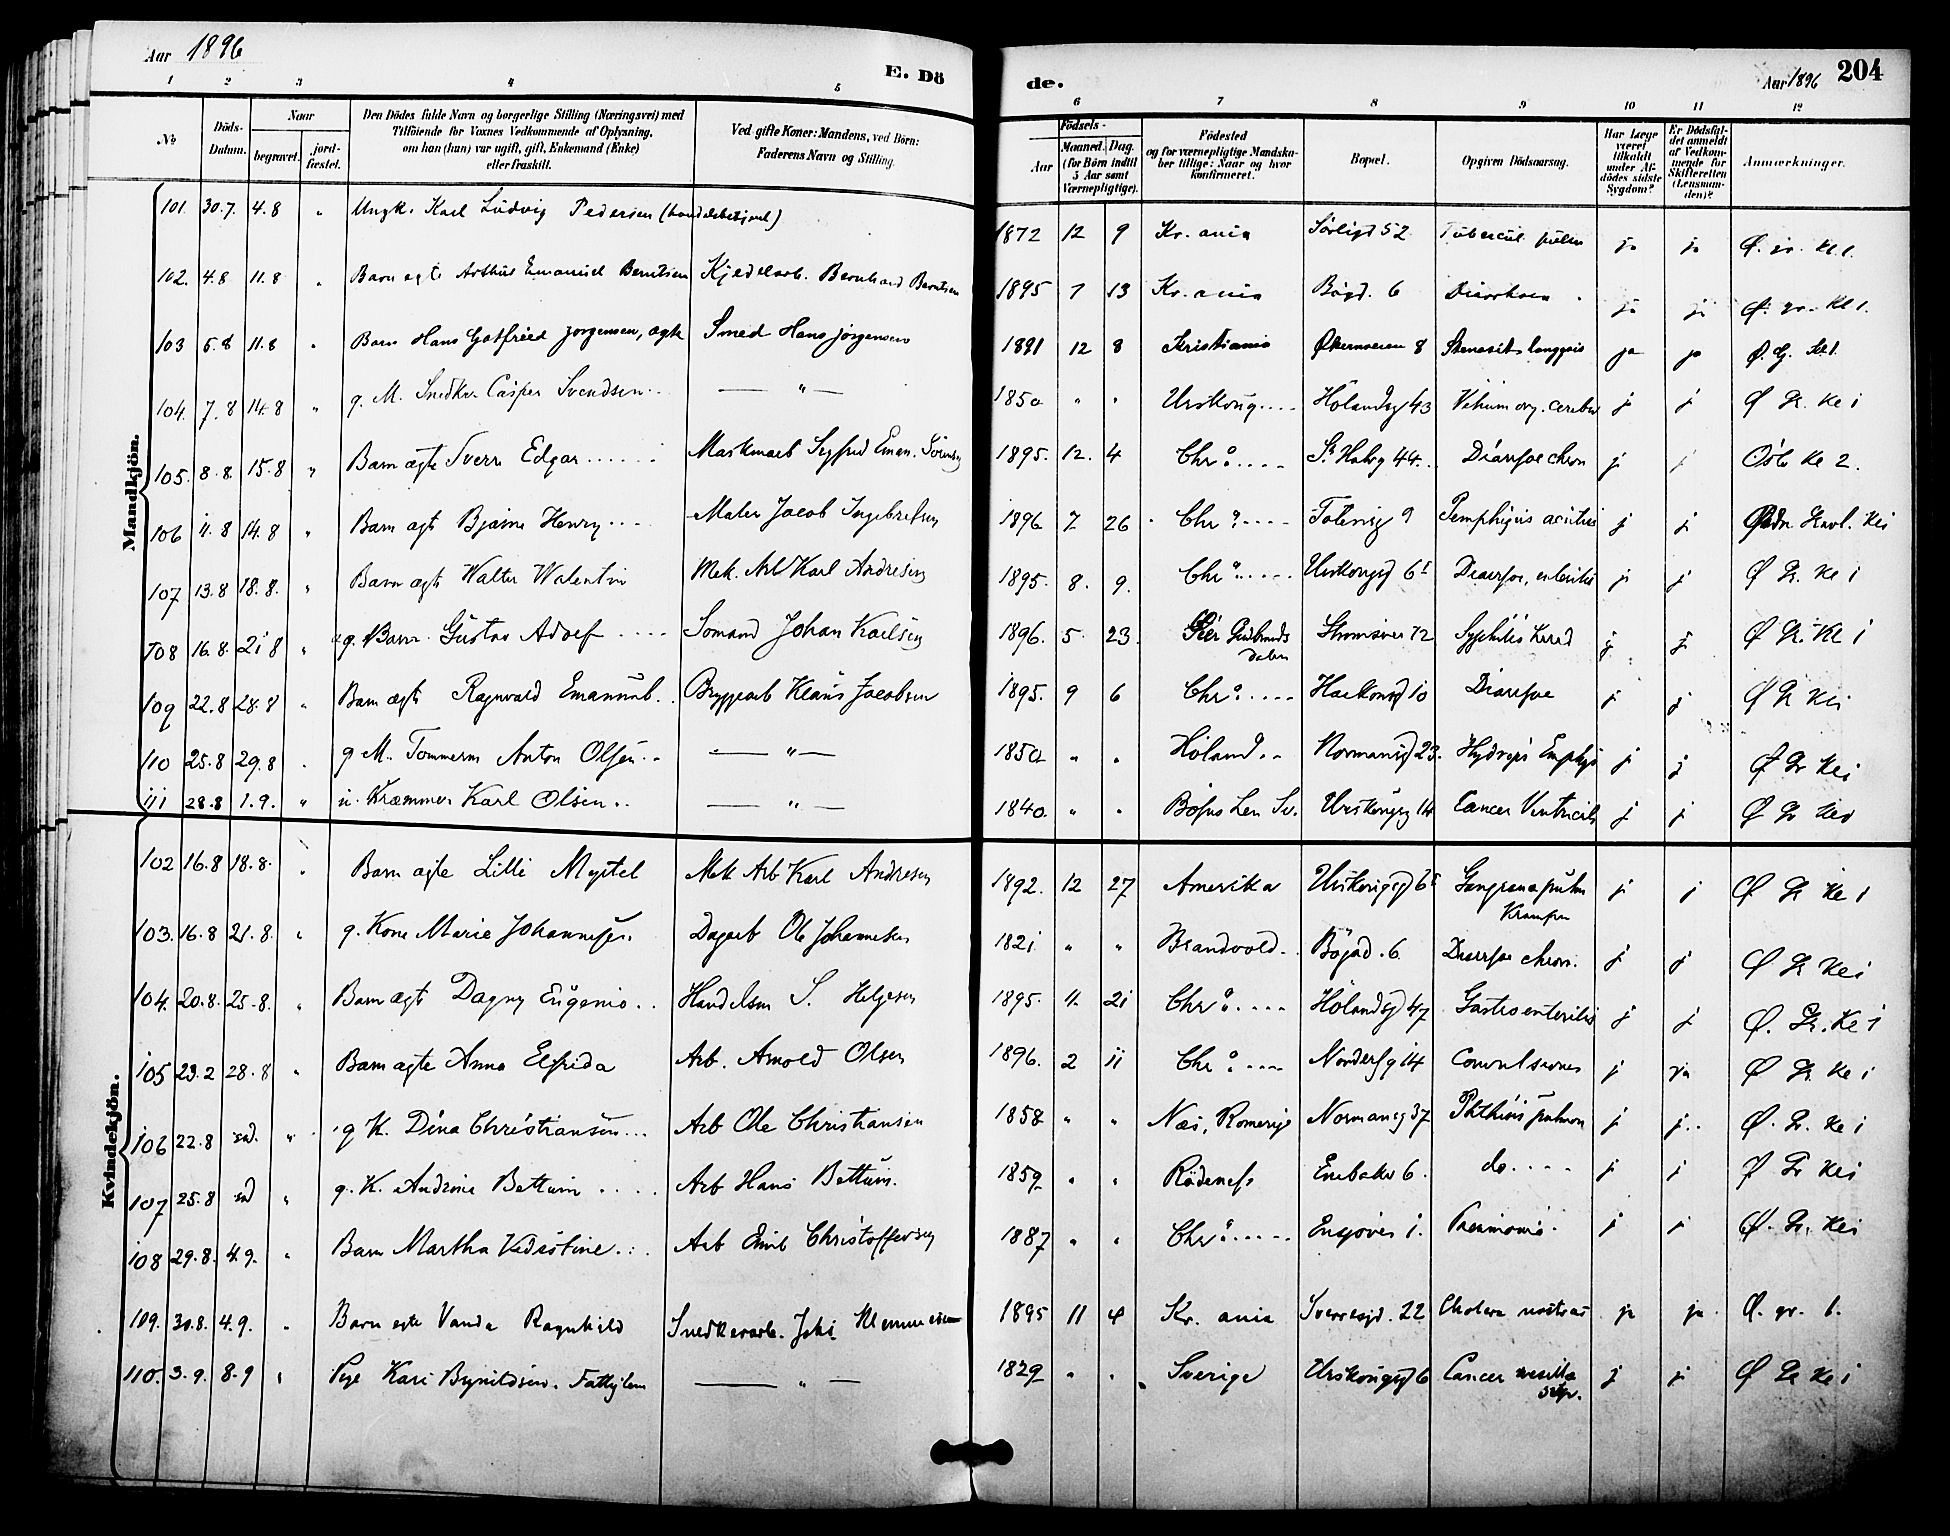 Aar 1896
E. Dö
de.
Aar 1896 204
1 2 3 4 5 6 7 8 9 10 11 12
No
Döds-Datum.
Naar
begravet.
jord-fæstet.
Den Dödes fulde Navn og borgerlige Stilling (Næringsvei) med
Tilföiende for Voxnes Vedkommende af Oplysning,
om han (hun) var ugift, gift, Enkemand (Enke)
eller fraskilt.
Ved gifte Koner: Mandens, ved Börn:
Faderens Navn og Stilling.
Födsels-
Aar
Maaned. Dag.
(for Börn indtil
5 Aar samt
Værnepligtige).
Födested
og for værnepligtige Mandska-
ber tillige: Naar og hvor
konfirmeret.
Bopæl.
Opgiven Dödsaarsag.
Har Læge
været
tilkaldt
under Af-
dödes sidste
Sygdom?
Er Dödsfal-
det anmeldt
af Vedkom-
mende for
Skifteretten
(Lensman-
den)?
Anmærkninger.
Mandkjön.
101. 30.7. 4.8 " Ungk. Karl Ludvig Pedersen (handelsbetjent) 1872 12 9 Kr.ania Sörligt 52 Tubercul. pulm ja ja Ø. gr. kl 1.
102. 4.8 11.8 " Barn ægte Arthur Emanuel Berntsen Kjedelarb. Bernhard Berntsen 1895 7 13 Kr.ania Bögd. 6 Diarrhoea ja ja Ø. gr. kl 1.
103 5.8 11.8 " Barn Hans Gotfried Jörgensen, ægte Smed Hans Jörgensen 1891 12 8 Kristiania Økernveien 8 ja ja Ø. G. kl 1.
104. 7.8 14.8 " g. M. Snedker Casper Svendsen — " — 1850 " " Urskoug Hölandsg 43 Vitium org. cerebri j j Ø Gr. kl 1
105. 8.8. 15.8 " Barn ægte Sverre Edgar Sigfred Eman. 1895. 12. 4 Chra 44 Diarrhoe chron j j Oslo kl 2.
106 11.8 14.8 " Barn ægte Bjarne Henry Maler Jacob Ingebretsen 1896 7 26 Chra 9 Pemphigus acutus j j kl 1
107 13.8 18.8. " Barn ægte Walter Valentin Mek. Arb Karl Andresen 1895. 8. 9. Chra Urskougsg 6 Diarrhoe, enteritis j j Ø Gr. kl 1
108 16.8. 21.8 " ug. Barn Gustav Adolf Sömand Johan Karlsen 1896. 5. 23. Gudbrandsdalen Strömsvei 72 Syphilis hered j j Ø Gr. kl 1
109 22.8 28.8 " Barn ægte Ragnvald Emanuel Bryggearb Klaus Jacobsen 1895. 9 6 Chra Haakonsg 10 Diarrhoe j j Ø Gr kl 1
110 25.8 29.8 " g M. Tömmerm Anton Olsen — " — 1850 " " Höland Normansg 23. j j Ø Gr kl 1
111 28.8 1.9. " u. Kræmmer Karl Olsen — " — 1840. " " Urskougsg 14 Cancer Ventriculi j j Ø Gr kl 1
Kvindekjön.
102 16.8 18.8. " Barn ægte Lilli Myrtel Mek Arb Karl Andresen 1892. 12 27 Amerika Urskougsg 6 Gangræna pulm j j Ø Gr kl 1
103. 16.8 21.8. " g. Kone Marie Johannesen Dagarb Ole Johannesen 1821. " " Brandvold Bögad. 6. Diarrhoe chron. j j Ø Gr kl 1
104. 20.8. 25.8. " Barn ægte Dagny Eugenie Handelsm S. Helgesen 1895. 11. 21 Chra Hölandsg 47 Gastroenteritis j j Ø. Gr. kl 1
105 23.2 28.8 " Barn ægte Anna Elfrida Arb. Arnold Olsen 1896. 2 11 Chra 14 Convulsiones j ja Ø Gr. kl 1
106 22.8 sd. " g K. Dina Christiansen Arb Ole Christiansen 1858 " " Næs, Romerige Normansg 37 Phthisis pulmon j j Ø. Gr. kl 1
107 25.8 sd " g. K. Andrine Bettum Arb Hans Bettum. 1859 " " Rödenes Enebakv 6. do. j j Ø Gr kl 1
108 29.8. 4.9. " Barn Martha Kristine Arb Emil Christoffersen 1887 " " Chra Ensjövei 1. Pneumonia j j Ø. Gr. kl 1
109. 30.8. 4.9. " Barn ægte Vanda Ragnhild Snedkerarb. 1895 11 4 Kr.ania Sverresgd. 22 Cholera nostras ja ja Ø. gr. 1.
110. 3.9. 8.9 " Pige Kari Fattiglem — " — 1829 " " Sverige Urskougsgd 6 Cancer j j Ø Gr kl 1